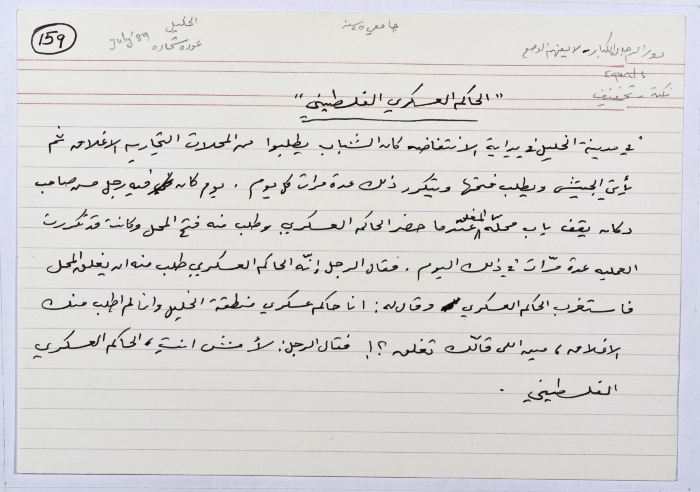 159
الخليل
عودة شحادة
July '89
جامعي ٤٥ سنة
دور الرجال الكبار - لا يعنيهم الوضع
نكتة وتخفيف
"الحاكم العسكري الفلسطيني"
في مدينة الخليل في بداية الانتفاضه كان الشباب يطلبوا من المحلات التجاريه الاغلاق ثم
يأتي الجيش ويطلب فتحها ويتكرر ذلك عدة مرات كل يوم . يوم كان فيه رجل من صاحب
دكان يقف باب محلّه المغلق عندما حضر الحاكم العسكري وطلب منه فتح المحل وكانت قد تكررت
العمليه عدة مرّات في ذلك اليوم . فقال الرجل إنّه الحاكم العسكري طلب منه ان يغلق المحل
فاستغرب الحاكم العسكري وقال له : انا حاكم عسكري منطقة الخليل وانا لم اطلب منك
الاغلاق ، مين اللي قالّك تغلق ؟! فقال الرجل : لأ مش انت ، الحاكم العسكري
الفلسطيني .